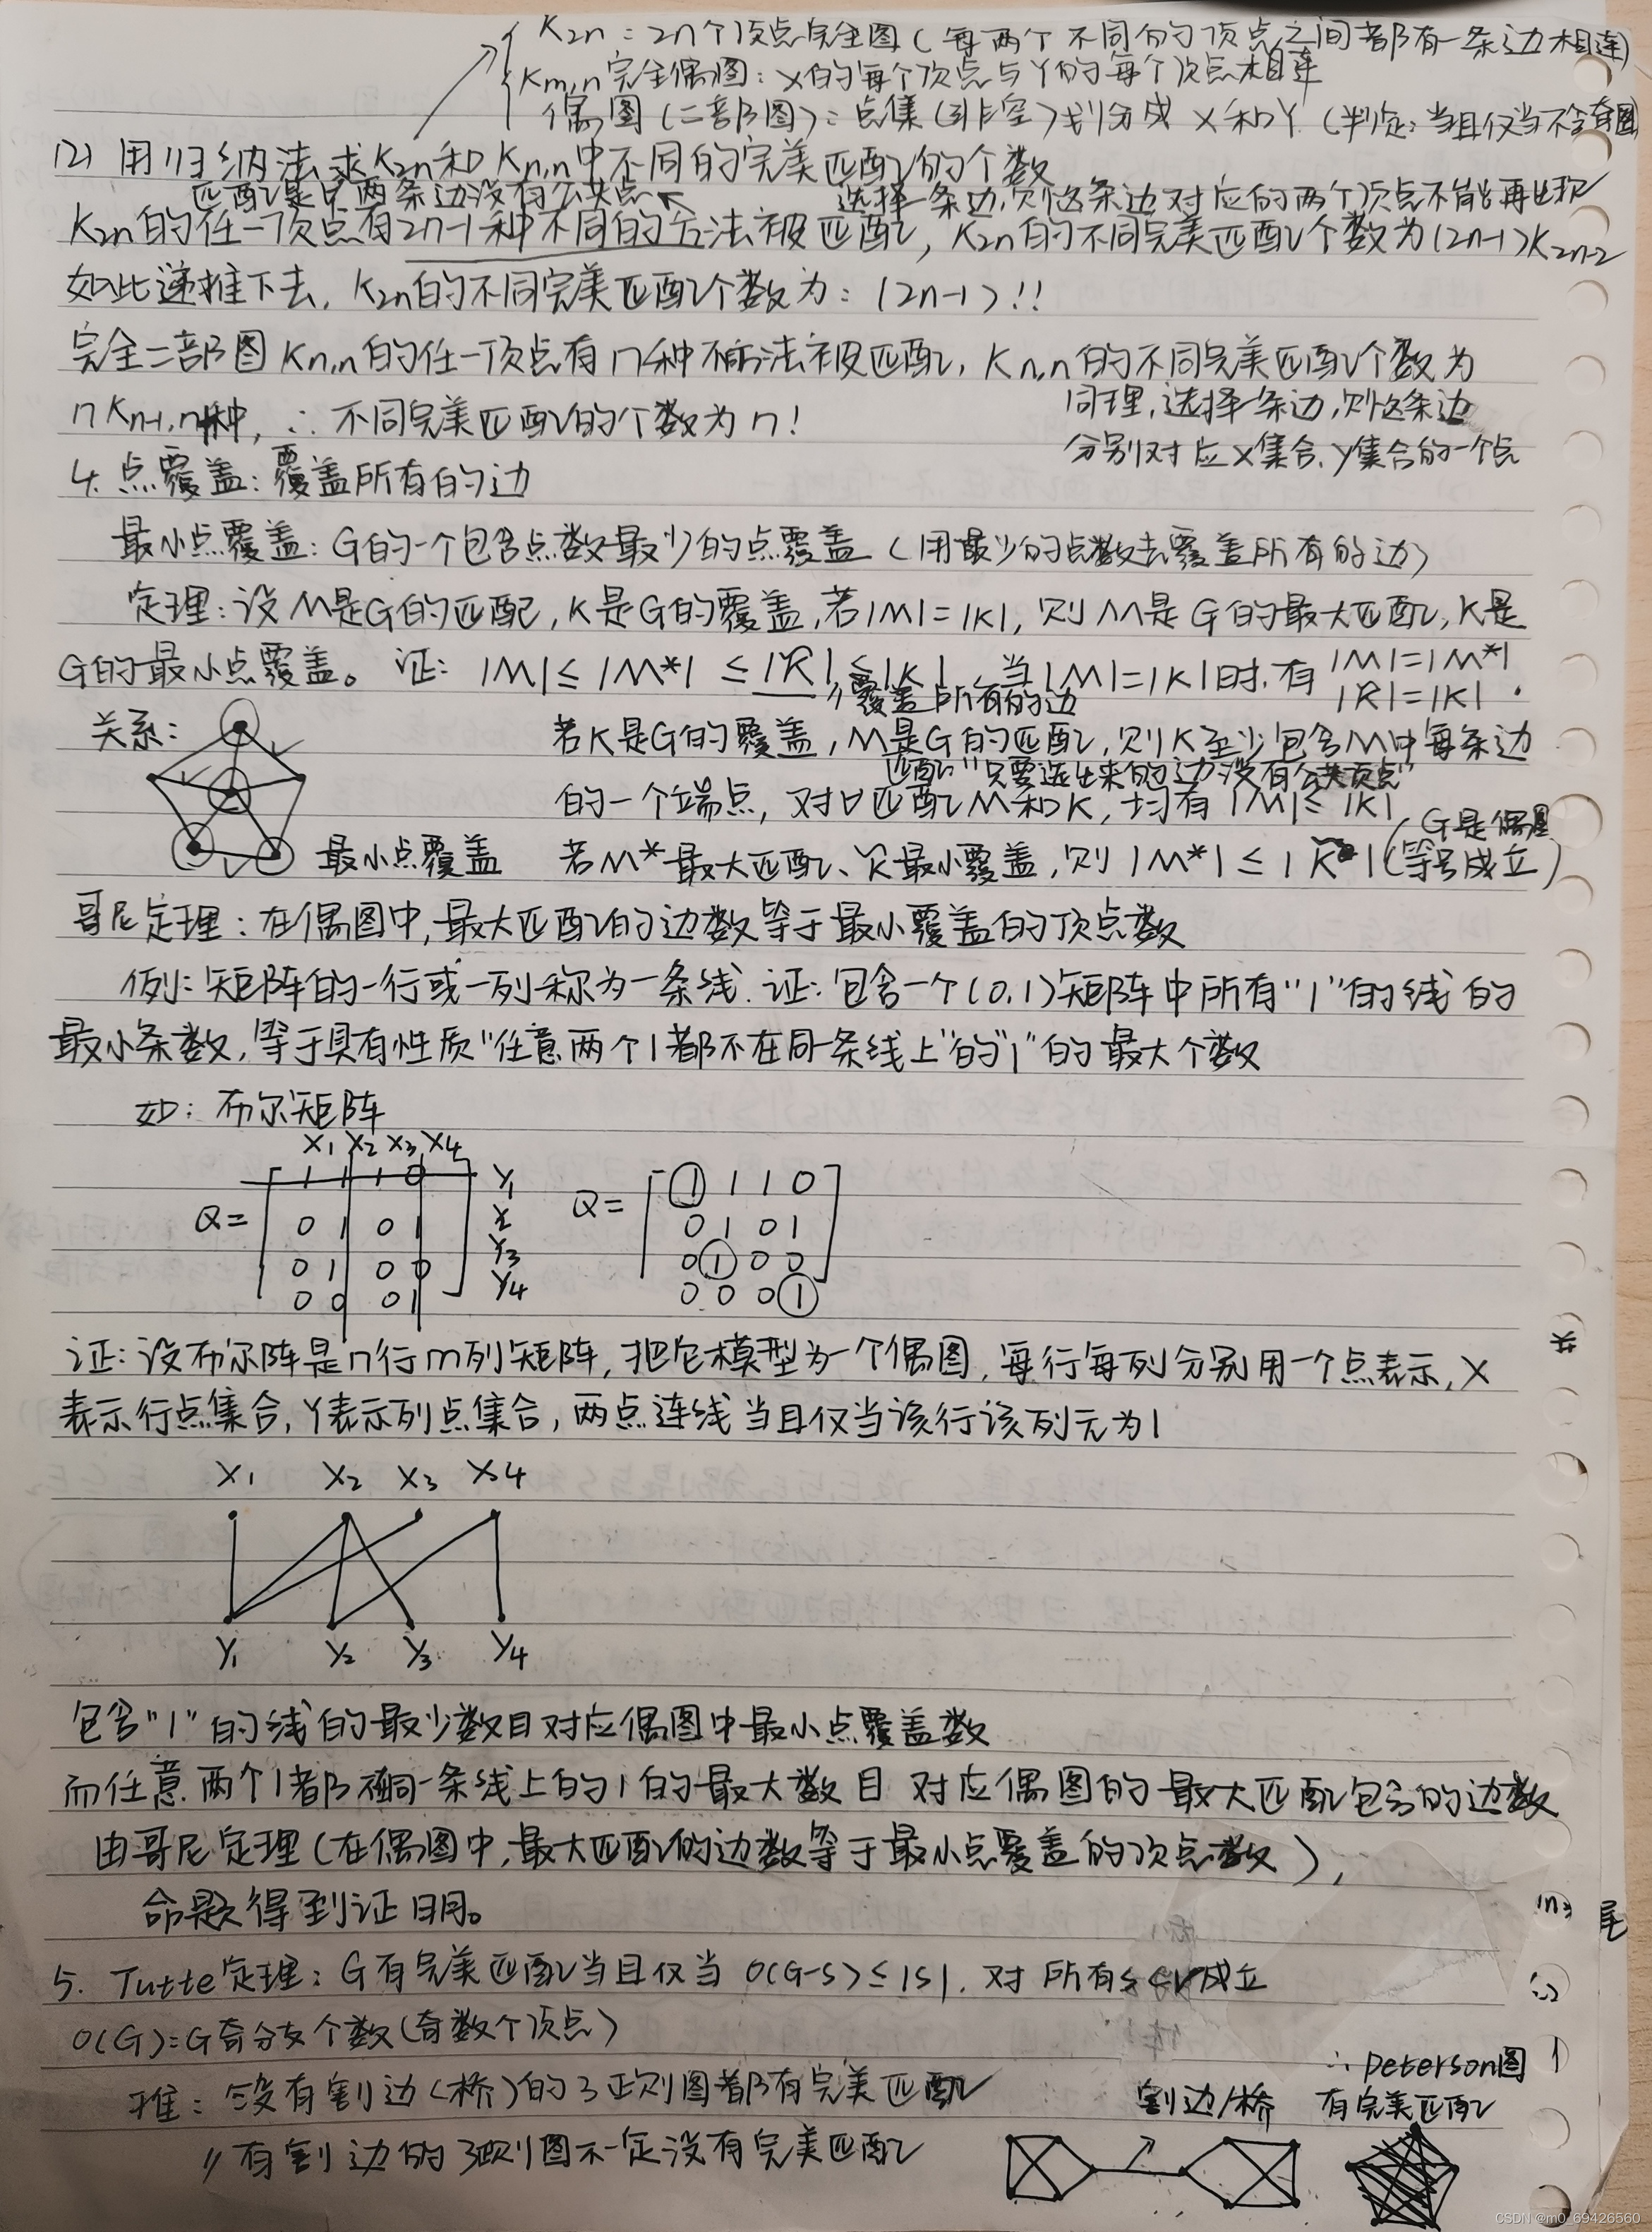 K2n:2n个顶点完全图(每两个不同的顶点之间都有一条边相连)
Km,n完全偶图:X的每个顶点与Y的每个顶点相连
偶图(二部图):点集(非空)划分成X和Y (判定:当且仅当不含奇圈)
(2) 用归纳法求K2n和Kn,n中不同的完美匹配的个数
匹配是 两条边没有公共点 选择一条边,则这条边对应的两个顶点不能再出现
K2n的任一顶点有2n-1种不同的方法被匹配,K2n的不同完美匹配个数为(2n-1)K2n-2
如此递推下去,K2n的不同完美匹配个数为:(2n-1)!!
完全二部图Kn,n的任一顶点有n种 方法被匹配,Kn,n的不同完美匹配个数为
nKn-1,n-1种,∴不同完美匹配的个数为n!
同理,选择一条边,则这条边
分别对应X集合、Y集合的一个点
4.点覆盖:覆盖所有的边
最小点覆盖:G的一个包含点数最少的点覆盖(用最少的点数去覆盖所有的边)
定理:设M是G的匹配,K是G的覆盖,若|M|=|K|,则M是G的最大匹配,K是
G的最小点覆盖。 证: |M|≤|M*|≤|K̃|≤|K|,当|M|=|K|时,有 |M|=|M*|
|K̃|=|K|.
〃覆盖所有的边
关系:
若K是G的覆盖,M是G的匹配,则K至少包含M中每条边
匹配"只要选出来的边没有公共顶点"
的一个端点,对∀匹配M和K,均有|M|≤|K|
最小点覆盖
若M*最大匹配、K̃最小覆盖,则|M*|≤|K̃|(G是偶图等号成立)
哥尼定理:在偶图中,最大匹配的边数等于最小覆盖的顶点数
例:矩阵的一行或一列称为一条线.证:包含一个(0,1)矩阵中所有"1"的线的
最小条数,等于具有性质"任意两个1都不在同一条线上"的"1"的最大个数
如:布尔矩阵
X1 X2 X3 X4
Q= 1 1 1 0 Y1
0 1 0 1 Y2
0 1 0 0 Y3
0 0 0 1 Y4
Q= 1 1 1 0
0 1 0 1
0 1 0 0
0 0 0 1
证:设布尔阵是n行m列矩阵,把它模型为一个偶图,每行每列分别用一个点表示,X
表示行点集合,Y表示列点集合,两点连线当且仅当该行该列元为1
X1 X2 X3 X4
Y1 Y2 Y3 Y4
包含"1"的线的最少数目对应偶图中最小点覆盖数
而任意两个1都不在同一条线上的1的最大数目 对应偶图的最大匹配包含的边数
由哥尼定理(在偶图中,最大匹配的边数等于最小点覆盖的顶点数),
命题得到证明。
5. Tutte定理:G有完美匹配当且仅当 O(G-S)≤|S|,对所有S⊂V成立
O(G):G奇分支个数(奇数个顶点)
推: 没有割边(桥)的3正则图都有完美匹配
〃有割边的3正则图不一定没有完美匹配
割边/桥
∴Peterson图
有完美匹配
尾
CSDN @m0_69426560